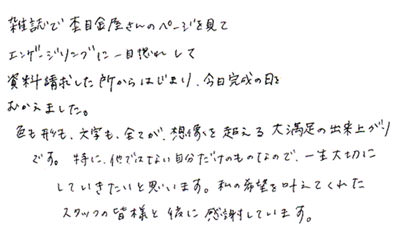 雑誌で杢目金屋さんのページを見て
エンゲージリングに一目惚れして
資料請求した所からはじまり、今日完成の日を
むかえました。
色も形も、文字も、全てが、想像を超える大満足の出来上がり
です。特に、他ではない自分だけのものなので、一生大切に
していきたいと思います。私の希望を叶えてくれた
スタッフの皆様と彼に感謝しています。